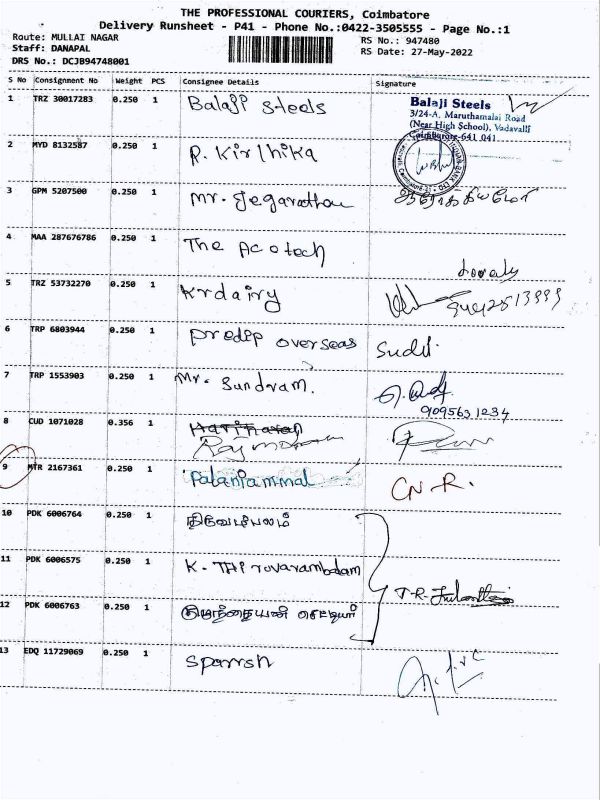 THE PROFESSIONAL COURIERS, Coimbatore
Delivery Runsheet - P41 - Phone No.:0422-3505555 - Page No.:1
Route: MULLAI NAGAR
RS No.: 947480
Staff: DANAPAL
RS Date: 27-May-2022
DRS No.: DCJB94748001
S No Consignment No Weight PCS Consignee Details Signature
1 TRZ 30017283 0.250 1 Balaji Steels
Balaji Steels
3/24-A, Maruthamalai Road
(Near High School), Vadavalli
Coimbatore-641 041
2 MYD 8132587 0.250 1 P. Kirthika
3 GPM 5207500 0.250 1 Mr. Jegarathan
4 MAA 287676786 0.250 1 The Aceotech
5 TRZ 53732270 0.250 1 Krdairy
6 TRP 6803944 0.250 1 Predip overseas
7 TRP 1553903 0.250 1 Mr. Sundram.
9095631234
8 CUD 1071028 0.356 1 Harihasan
Rajmohan
9 MTR 2167361 0.250 1 Palaniammal CN-R.
10 PDK 6006764 0.250 1
11 PDK 6006575 0.250 1 K-
12 PDK 6006763 0.250 1
T-R-
13 EDQ 11729069 0.250 1 Sparrsh